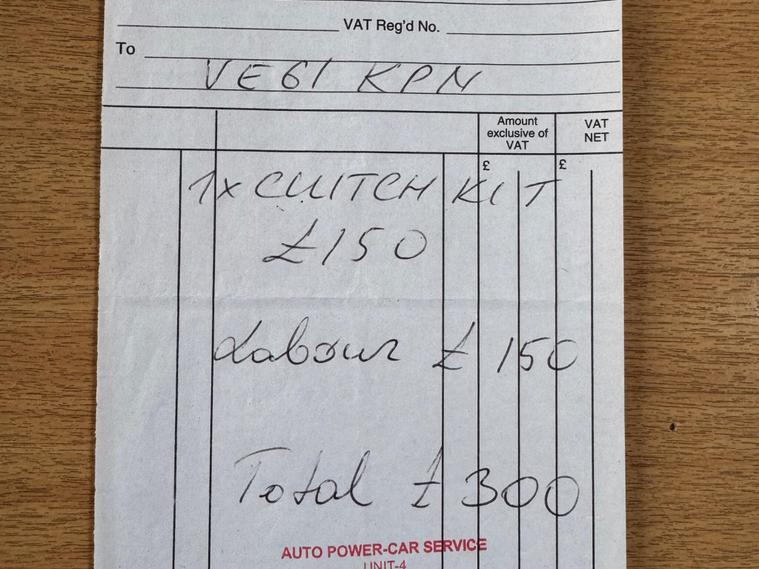 VAT Reg'd No.
To
VE61 KPN
Amount
exclusive of
VAT
VAT
NET
£ £
1x CLUTCH KIT
£150
Labour £ 150
Total £ 300
AUTO POWER-CAR SERVICE
UNIT-4